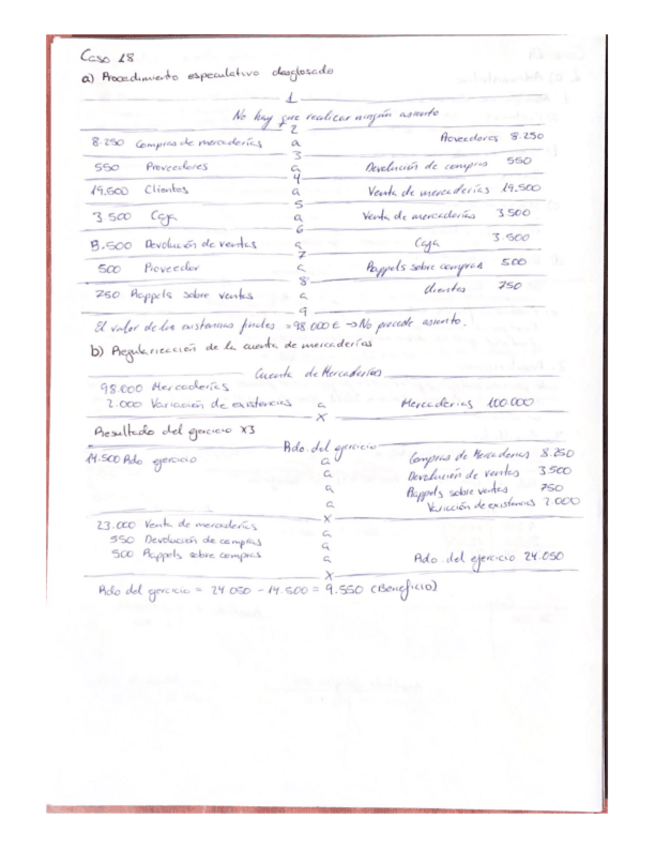 Caso 18
a) Procedimiento especulativo desglosado
1
No hay que realizar ningún asiento
2
8.250 Compras de mercaderías a Proveedores 8.250
3
550 Proveedores a Devolución de compras 550
4
19.500 Clientes a Venta de mercaderías 19.500
5
3 500 Caja a Venta de mercaderías 3 500
6
3.500 Devolución de ventas a Caja 3.500
7
500 Proveedor a Rappels sobre compras 500
8
750 Rappels sobre ventas a Clientes 750
9
El valor de las existencias finales = 98 000 € → No procede asiento.
b) Regularización de la cuenta de mercaderías
Cuenta de Mercaderías
98.000 Mercaderías
2.000 Variación de existencias a Mercaderías 100.000
X
Resultado del ejercicio X3
Rdo. del ejercicio
14.500 Rdo ejercicio a Compras de Mercaderías 8.250
a Devolución de ventas 3500
a Rappels sobre ventas 750
a Variación de existencias 2.000
X
23.000 Venta de mercaderías a
550 Devolución de compras a
500 Rappels sobre compras a Rdo. del ejercicio 24.050
X
Rdo del ejercicio = 24 050 - 14.500 = 9.550 (Beneficio)